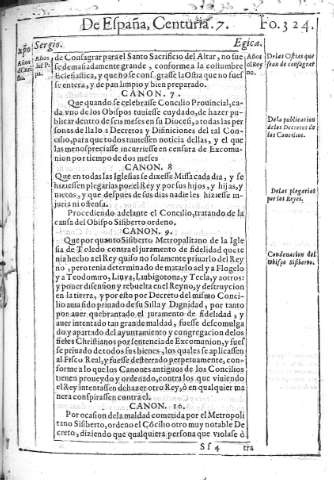 De España, Centuria. 7. Fo. 324.
Sergio. Egica.
de Consagrar para el Santo Sacrificio del Altar, no fuesse
demasiadamente grande, conforme a la costumbre
Eclesiastica, y que no se consagrasse la Ostia que no fuesse
entera, y de pan limpio y bien preparado.
De las Ostias que
se an de consagrar
CANON. 7.
Que quando se celebrasse Concilio Provincial, cada
vno de los Obispos tuuiesse cuydado, de hazer publicar
dentro de seis meses en su Diocesi, a todas las personas
della lo s Decretos y Difiniciones del tal Concilio,
para que todos tuuiessen noticia dellas, y el que
las menospreciasse incurriesse en censura de Excomunion
por tiempo de dos meses
De la publicacion
de los Decretos de
los Concilios.
CANON. 8
Que en todas las Iglesias se dixesse Missa cada dia, y se
hiziessen plegarias por el Rey y por sus hijos, y hijas, y
nietos, y que despues de sus dias nadie les hiziesse injuria
ni ofensa.
De las plegarias
por los Reyes.
Procediendo adelante el Concilio, tratando de la
causa del Obispo Sisiberto ordeno.
CANON. 9.
Que por quanto Sisiberto Metropolitano de la Iglesia
de Toledo contra el juramento de fidelidad que tenia
hecho a el Rey quiso no solamente priuarlo del Reyno
, pero tenia determinado de matarlo a el y a Flogelo
y a Teodomiro, Liuua, Liubigotona, y Tecla, y a otros:
y poner disension y rebuelta en el Reyno, y destruycion
en la tierra, y por esto por Decreto del mismo Concilio
auia sido priuado de su Silla y Dignidad, por tanto
por auer quebrantado el juramento de fidelidad, y
auer intentado tan grande maldad, fuesse descomulgado
y apartado del ayuntamiento y congregacion de los
fieles Christianos por sentencia de Excomunion, y fuesse
priuado de todos sus bienes, los quales se aplicassen
al Fisco Real, y fuesse desterrado perpetuamente, conforme
a lo que los Canones antiguos de los Concilios
tienen proueydo y ordenado, contra los que viuiendo
el Rey intentassen de hazer otro Rey, o en qualquier manera
conspirassen contra el.
Condenacion del
Obispo Sisiberto.
CANON. 10.
Por ocasion de la maldad cometida por el Metropolitano
Sisiberto, ordeno el Cōcilio otro muy notable Decreto,
diziendo que qualquiera persona que violasse o
Sf 4 tra